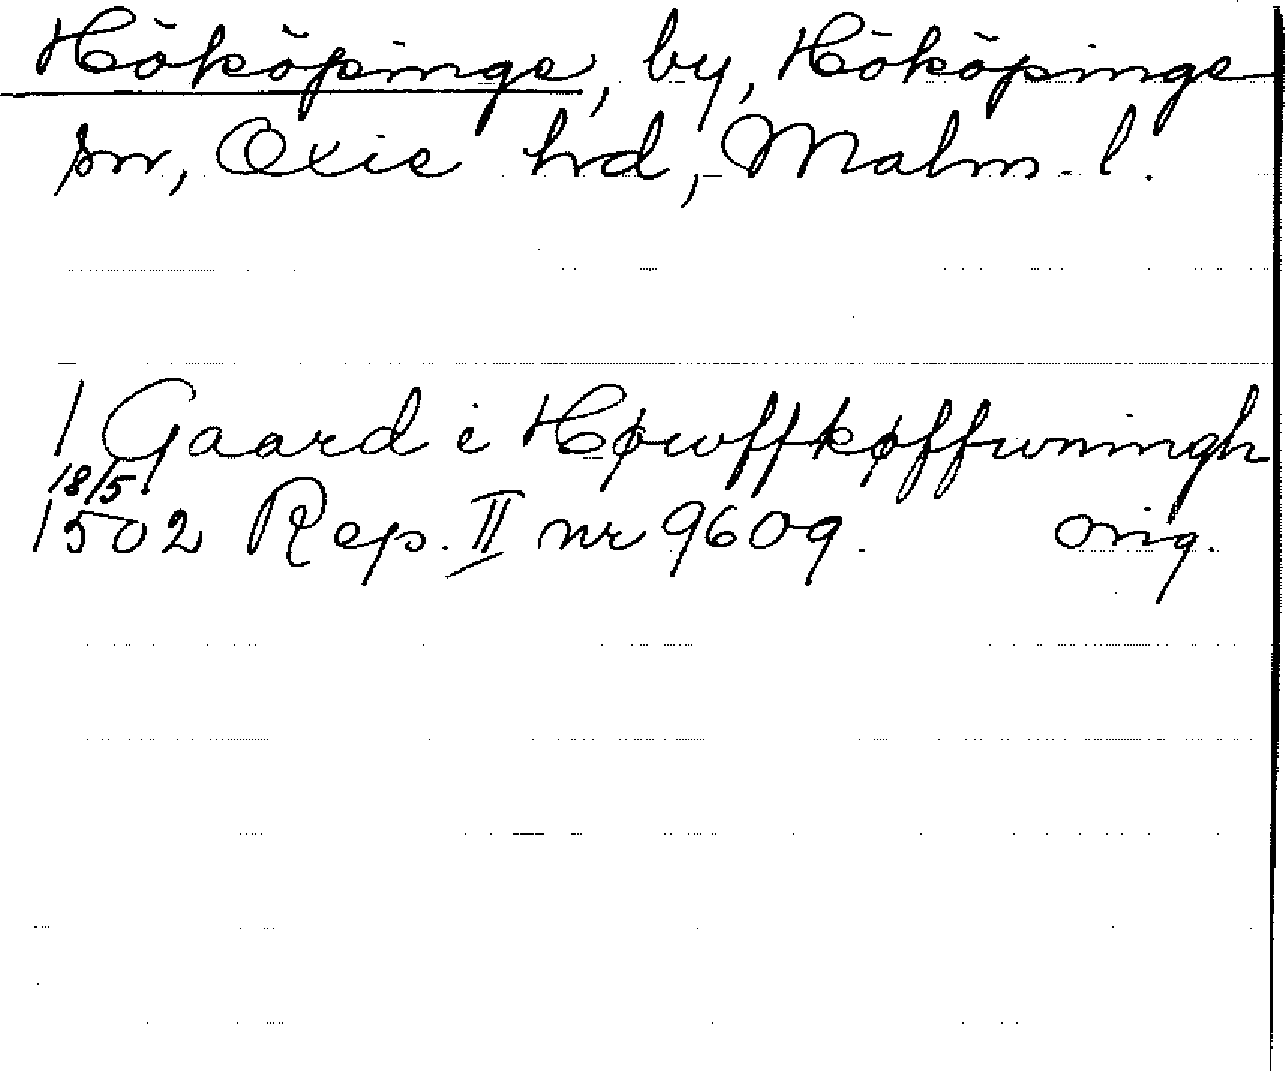 Hököpinge, by, Hököpinge
sn, Oxie hrd, Malm. l.
1 Gaard i Høwffkøffwningh
18/5
1502 Rep. II nr 9609. orig.